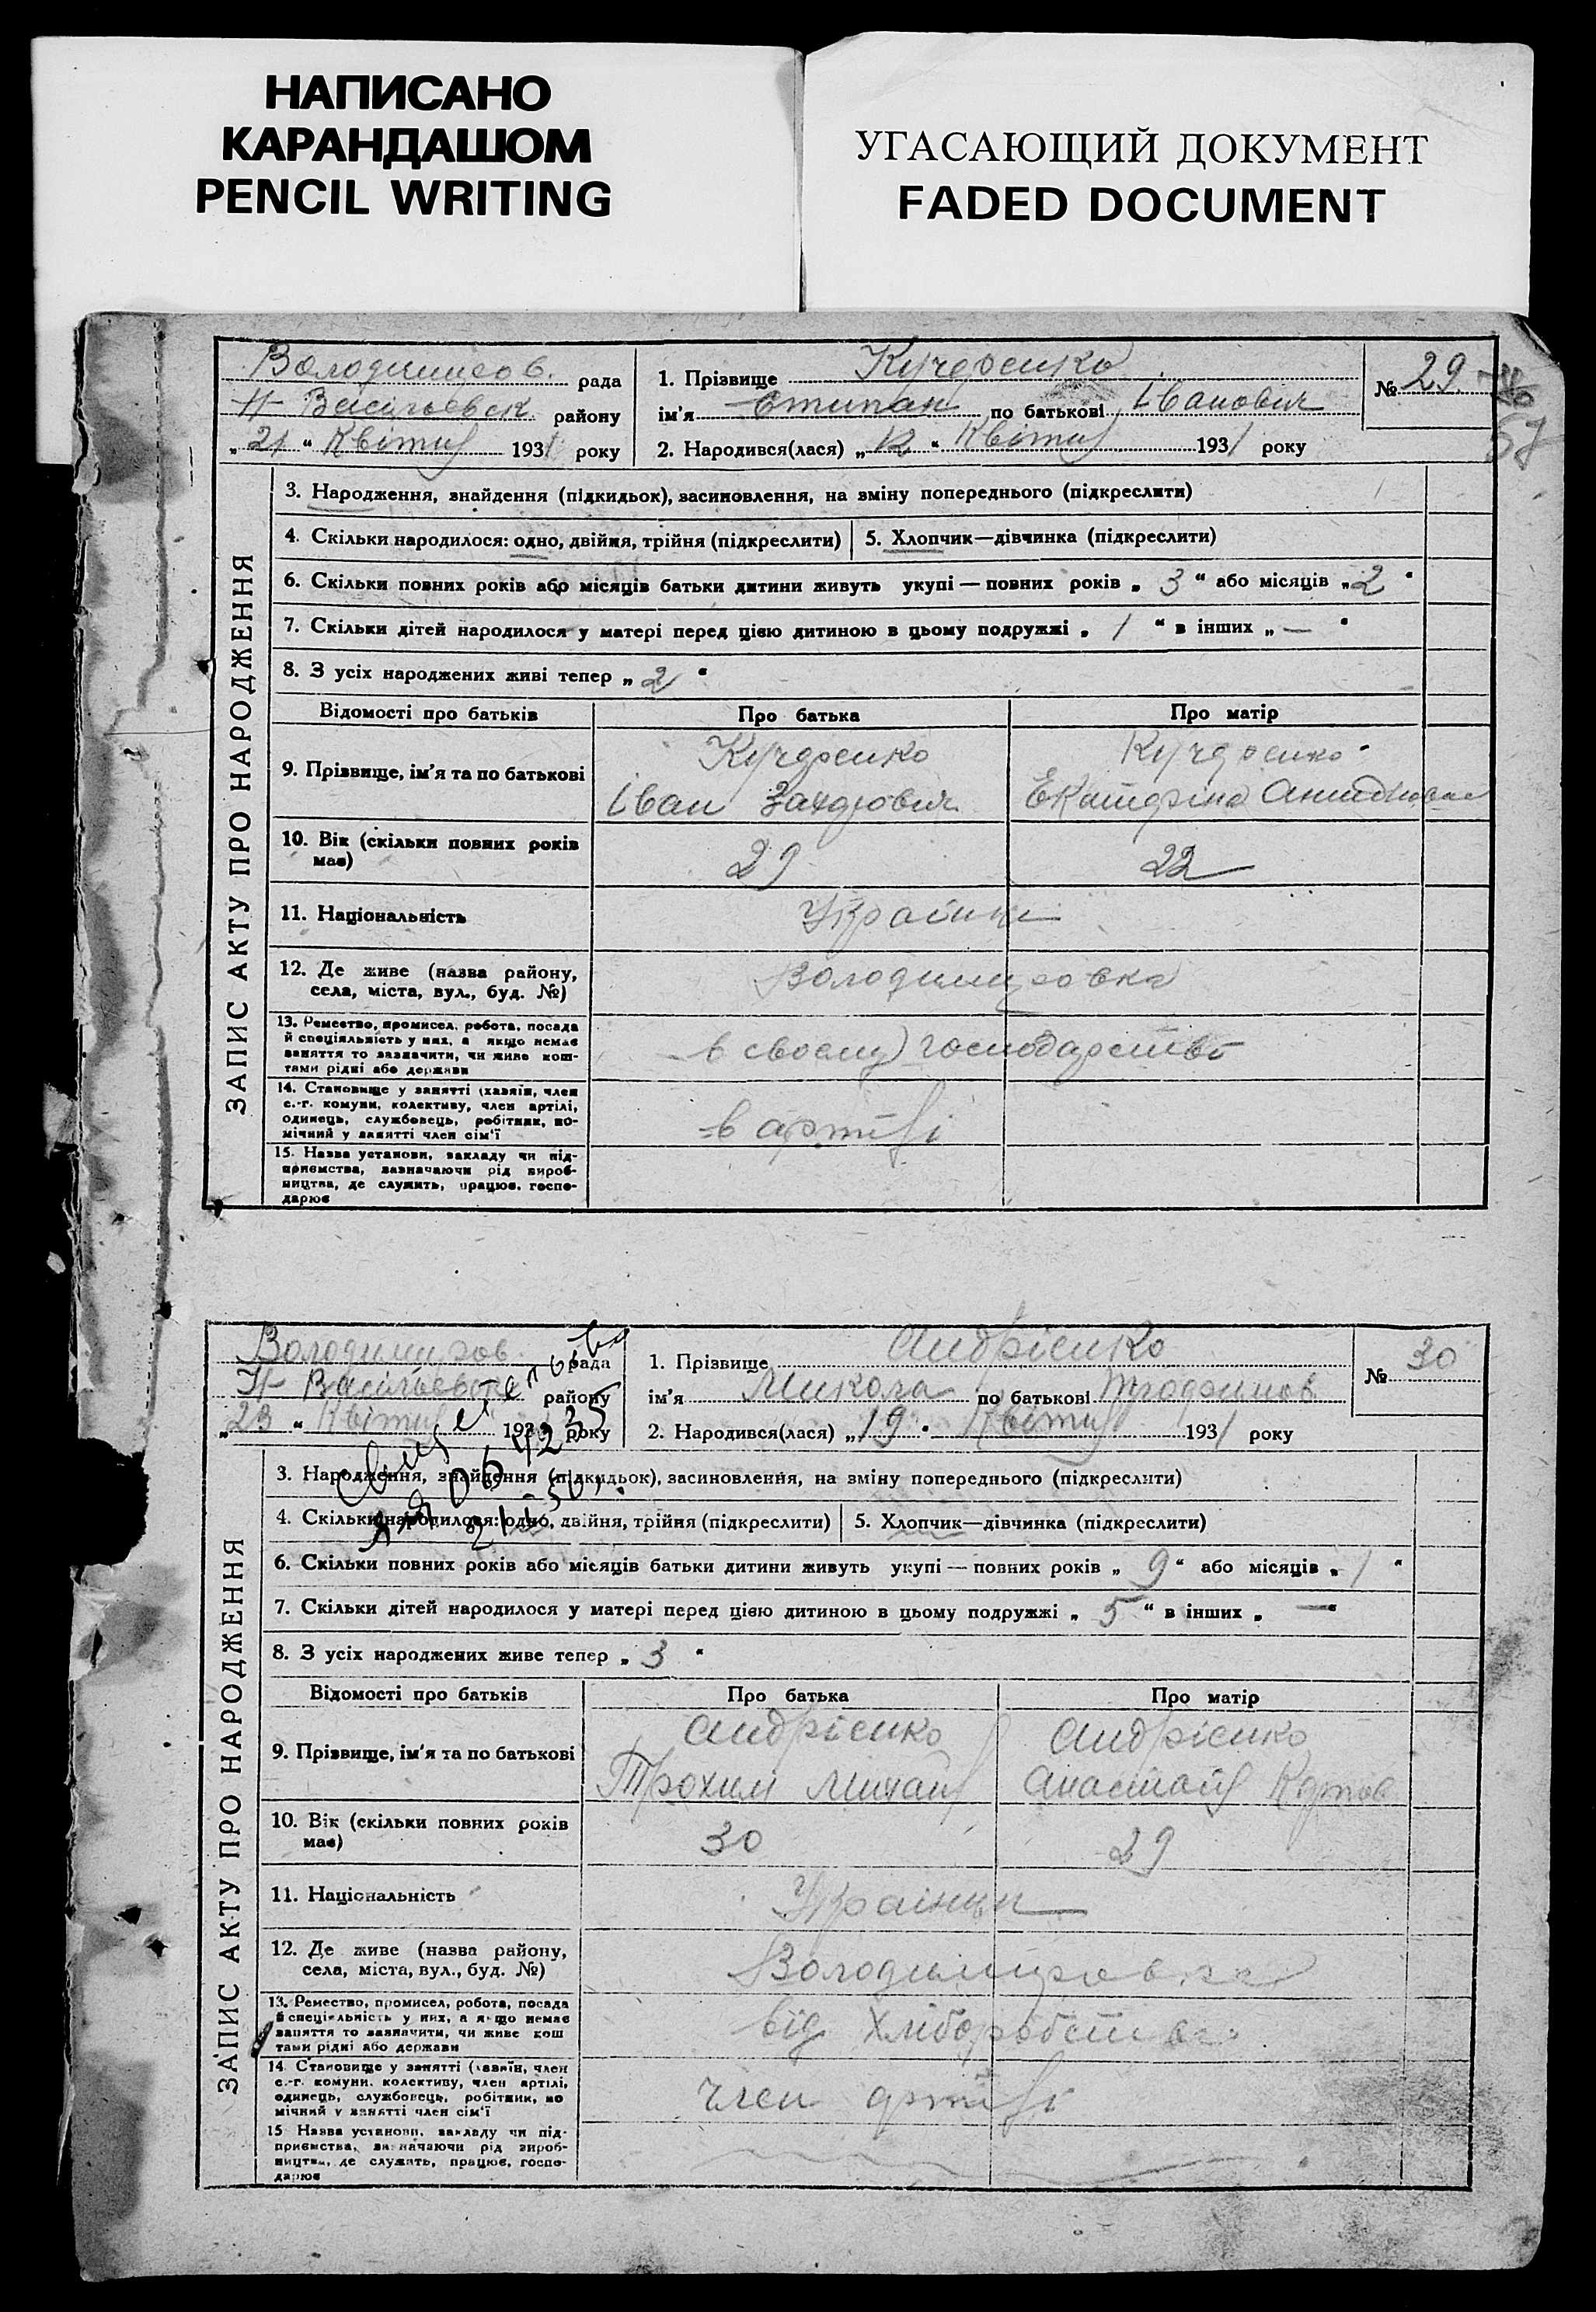 НАПИСАНО
КАРАНДАШОМ
PENCIL WRITING
УГАСАЮЩИЙ ДОКУМЕНТ
FADED DOCUMENT
ЗАПИС АКТУ ПРО НАРОДЖЕННЯ
рада
Н-Васильевск району
„21“ Квітня 1931 року
1. Прізвище Кучеренко
ім'я Степан по батькові Іванович
2. Народився(лася) „12“ Квітня 1931 року
№ 29
57
3. Народження, знайдення (підкидьок), засиновлення, на зміну попереднього (підкреслити)
4. Скільки народилося: одно, двійня, трійня (підкреслити)
5. Хлопчик—дівчинка (підкреслити)
6. Скільки повних років або місяців батьки дитини живуть укупі — повних років „3“ або місяців „2“
7. Скільки дітей народилося у матері перед цією дитиною в цьому подружжі „1“ в інших „—“
8. З усіх народжених живі тепер „2“
Відомості про батьків
Про батька
Про матір
9. Прізвище, ім'я та по батькові
Кучеренко
Іван
Кучеренко
Екатеріна
10. Вік (скільки повних років
має)
29
22
11. Національність
Українці
12. Де живе (назва району,
села, міста, вул., буд. №)
Володимировка
13. Ремество, промисел, робота, посада
й спеціяльність у них, а якщо немає
заняття то зазначити, чи живе кош-
тами рідні або держави
в своему господарстві
14. Становище у занятті (хазяїн, член
с.-г. комуни, колективу, член артілі,
одинець, службовець, робітник, по-
мічний у занятті член сім'ї
в артілі
15. Назва установи, закладу чи під-
приємства, зазначаючи рід вироб-
ництва, де служить, працює, госпо-
дарює
ЗАПИС АКТУ ПРО НАРОДЖЕННЯ
Володимиров. рада
Н-Васильевск району
„23“ Квітня 1931 року
1. Прізвище Андрієнко
ім'я Микола по батькові
2. Народився(лася) „19“ Квітня 1931 року
№ 30
3. Народження, знайдення (підкидьок), засиновлення, на зміну попереднього (підкреслити)
4. Скільки народилося: одно, двійня, трійня (підкреслити)
5. Хлопчик—дівчинка (підкреслити)
6. Скільки повних років або місяців батьки дитини живуть укупі — повних років „9“ або місяців „1“
7. Скільки дітей народилося у матері перед цією дитиною в цьому подружжі „5“ в інших „—“
8. З усіх народжених живе тепер „3“
Відомості про батьків
Про батька
Про матір
9. Прізвище, ім'я та по батькові
Андрієнко
Трохим
Андрієнко
10. Вік (скільки повних років
має)
30
29
11. Національність
Українци
12. Де живе (назва району,
села, міста, вул., буд. №)
Володимировка
13. Ремество, промисел, робота, посада
й спеціяльність у них, а якщо немає
заняття то зазначити, чи живе кош
тами рідні або держави
від
14. Становище у занятті (хазяїн, член
с.-г. комуни, колективу, член артілі,
одинець, службовець, робітник, по
мічний у занятті член сім'ї
член артілі
15. Назва установи, закладу чи під-
приємства, зазначаючи рід вироб-
ництва, де служить, працює, госпо-
дарює